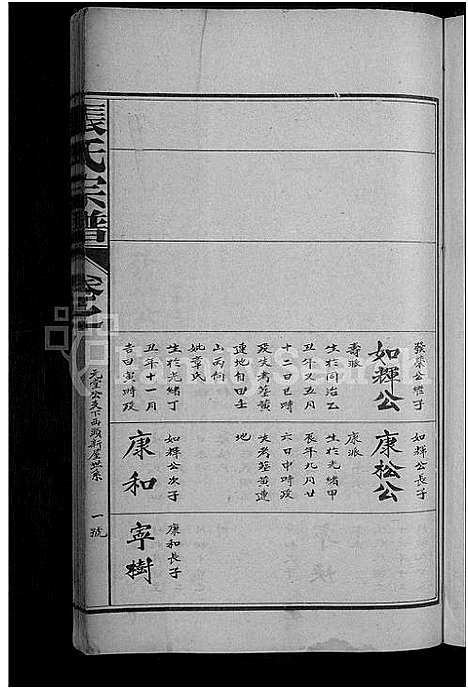 發榮公繼子
如輝公
壽派
生於同治乙
丑年又五月
十二日巳時
歿失考塋黃
連地自田土
山丙向
妣章氏
生於光緒丁
丑年十一月
吉日寅時歿
如輝公長子
康松公
康派
生於光緒甲
辰年九月廿
六日申時歿
失考塋黃連
地
如輝公次子
康和
康和長子
寧樹
張氏宗譜
卷之二
元堂公支下西頭新屋世系
一號